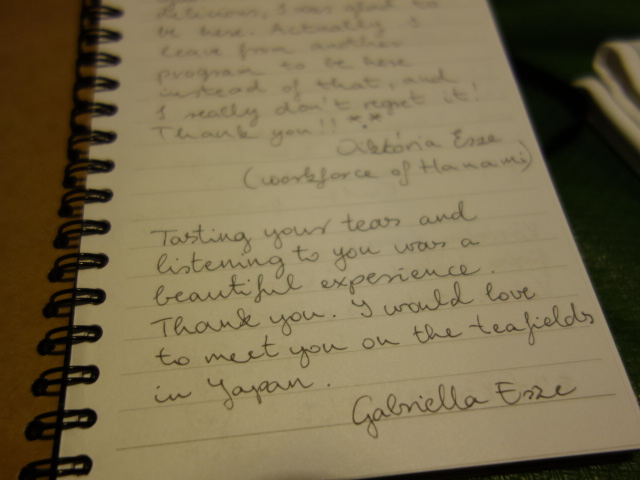 delicious, I was glad to
be here. Actually I
leave from another
program to be here
instead of that, and
I really don't regret it!
Thank you!!
Viktória Esze
(workforce of Hanami)
Tasting your teas and
listening to you was a
beautiful experience.
Thank you. I would love
to meet you on the teafields
in Japan.
Gabriella Esze